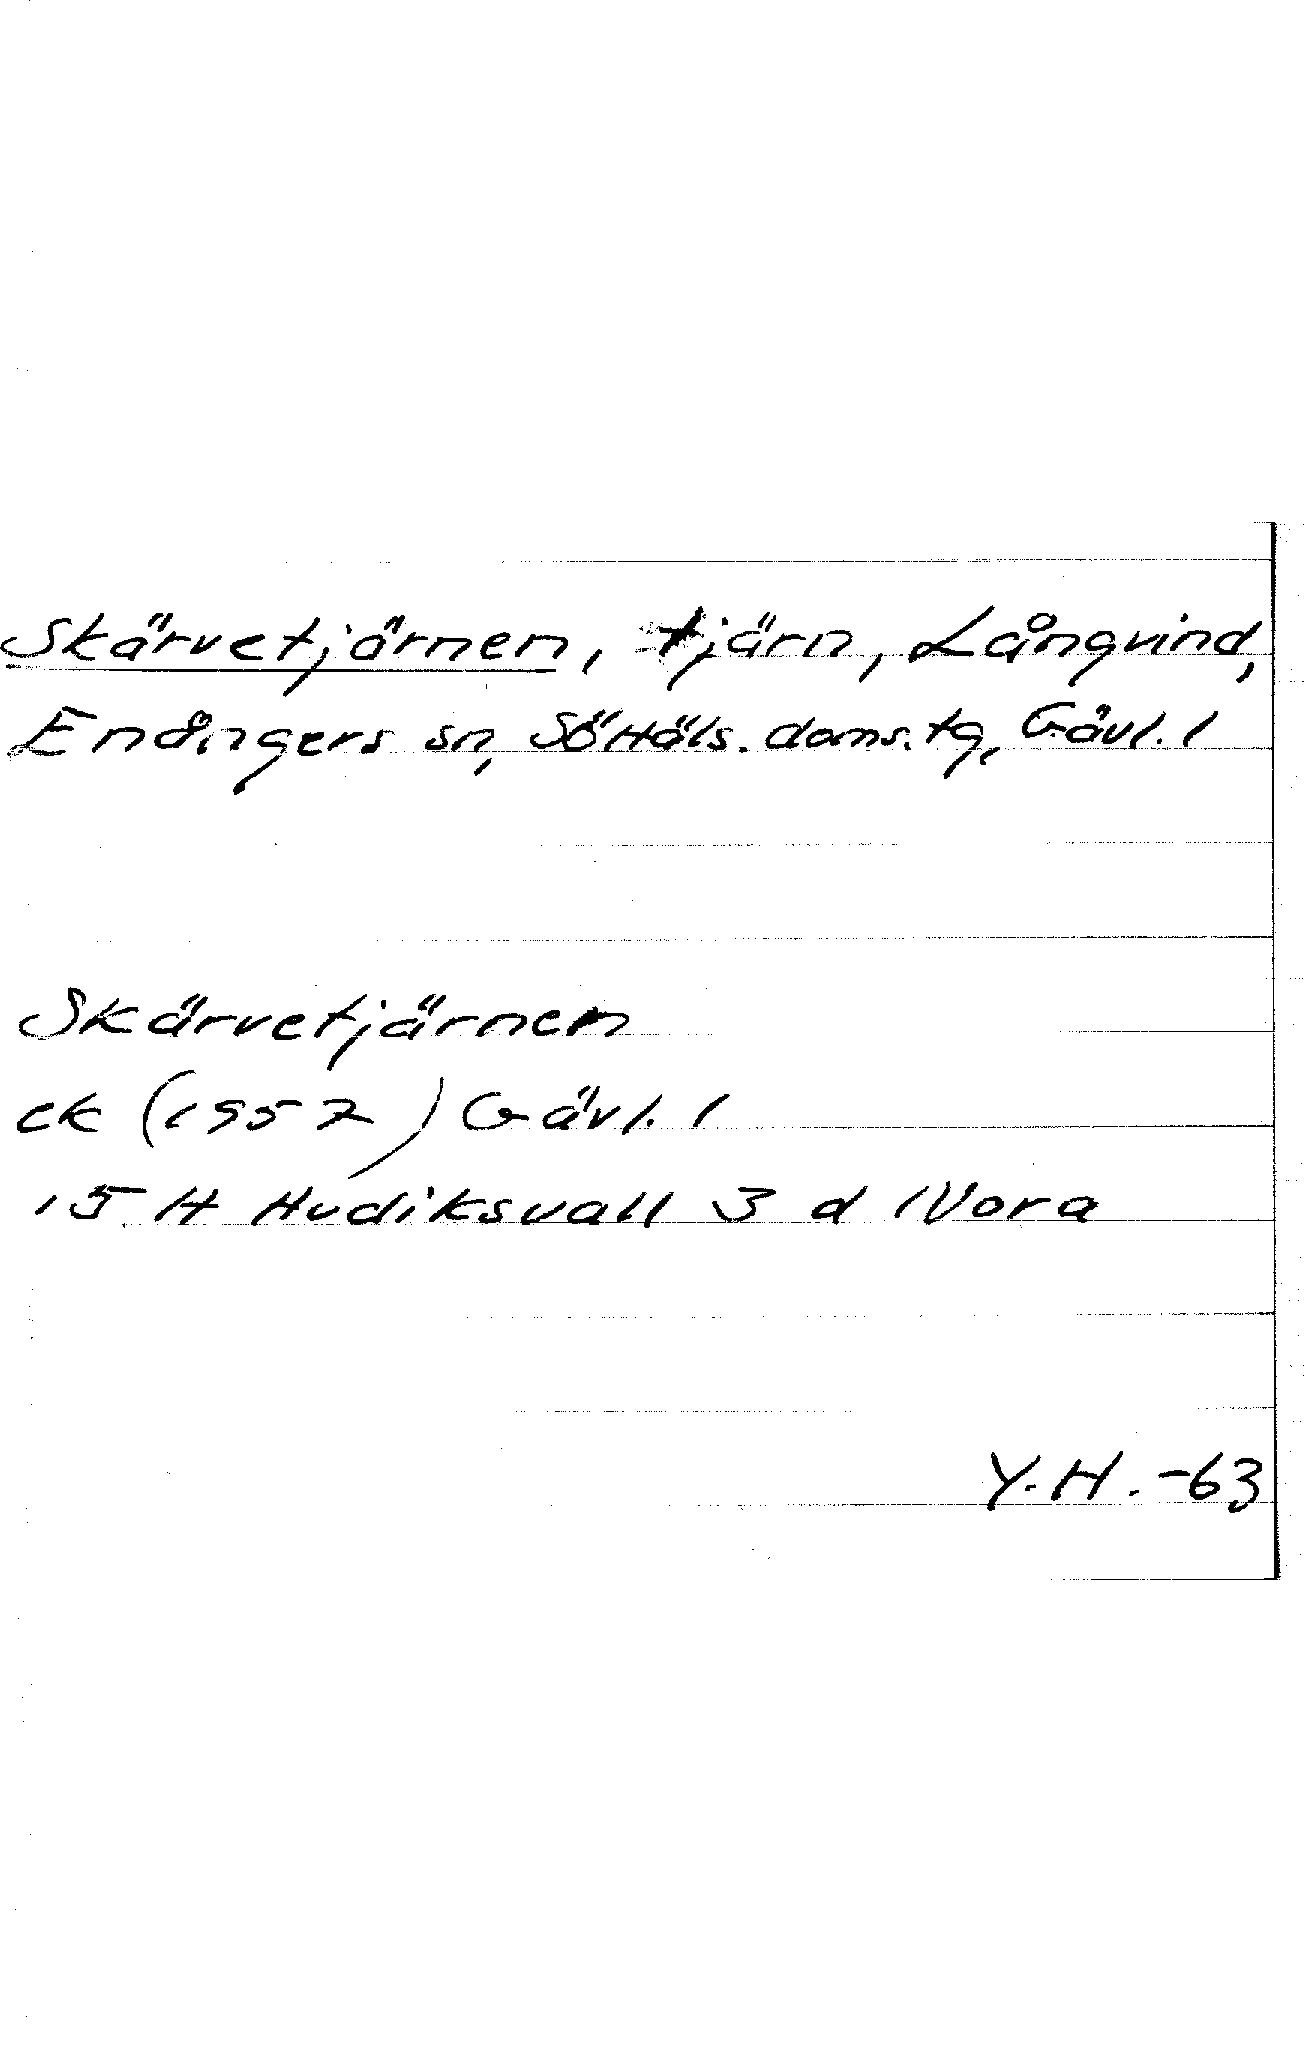 Skärvetjärnen, tjärn, Långvind,
Enångers sn, SöHäls. doms. tg, Gävl. l
Skärvetjärnen
ek (1957) Gävl. l
15 H Hudiksvall 3 d Nora
Y.H. -63